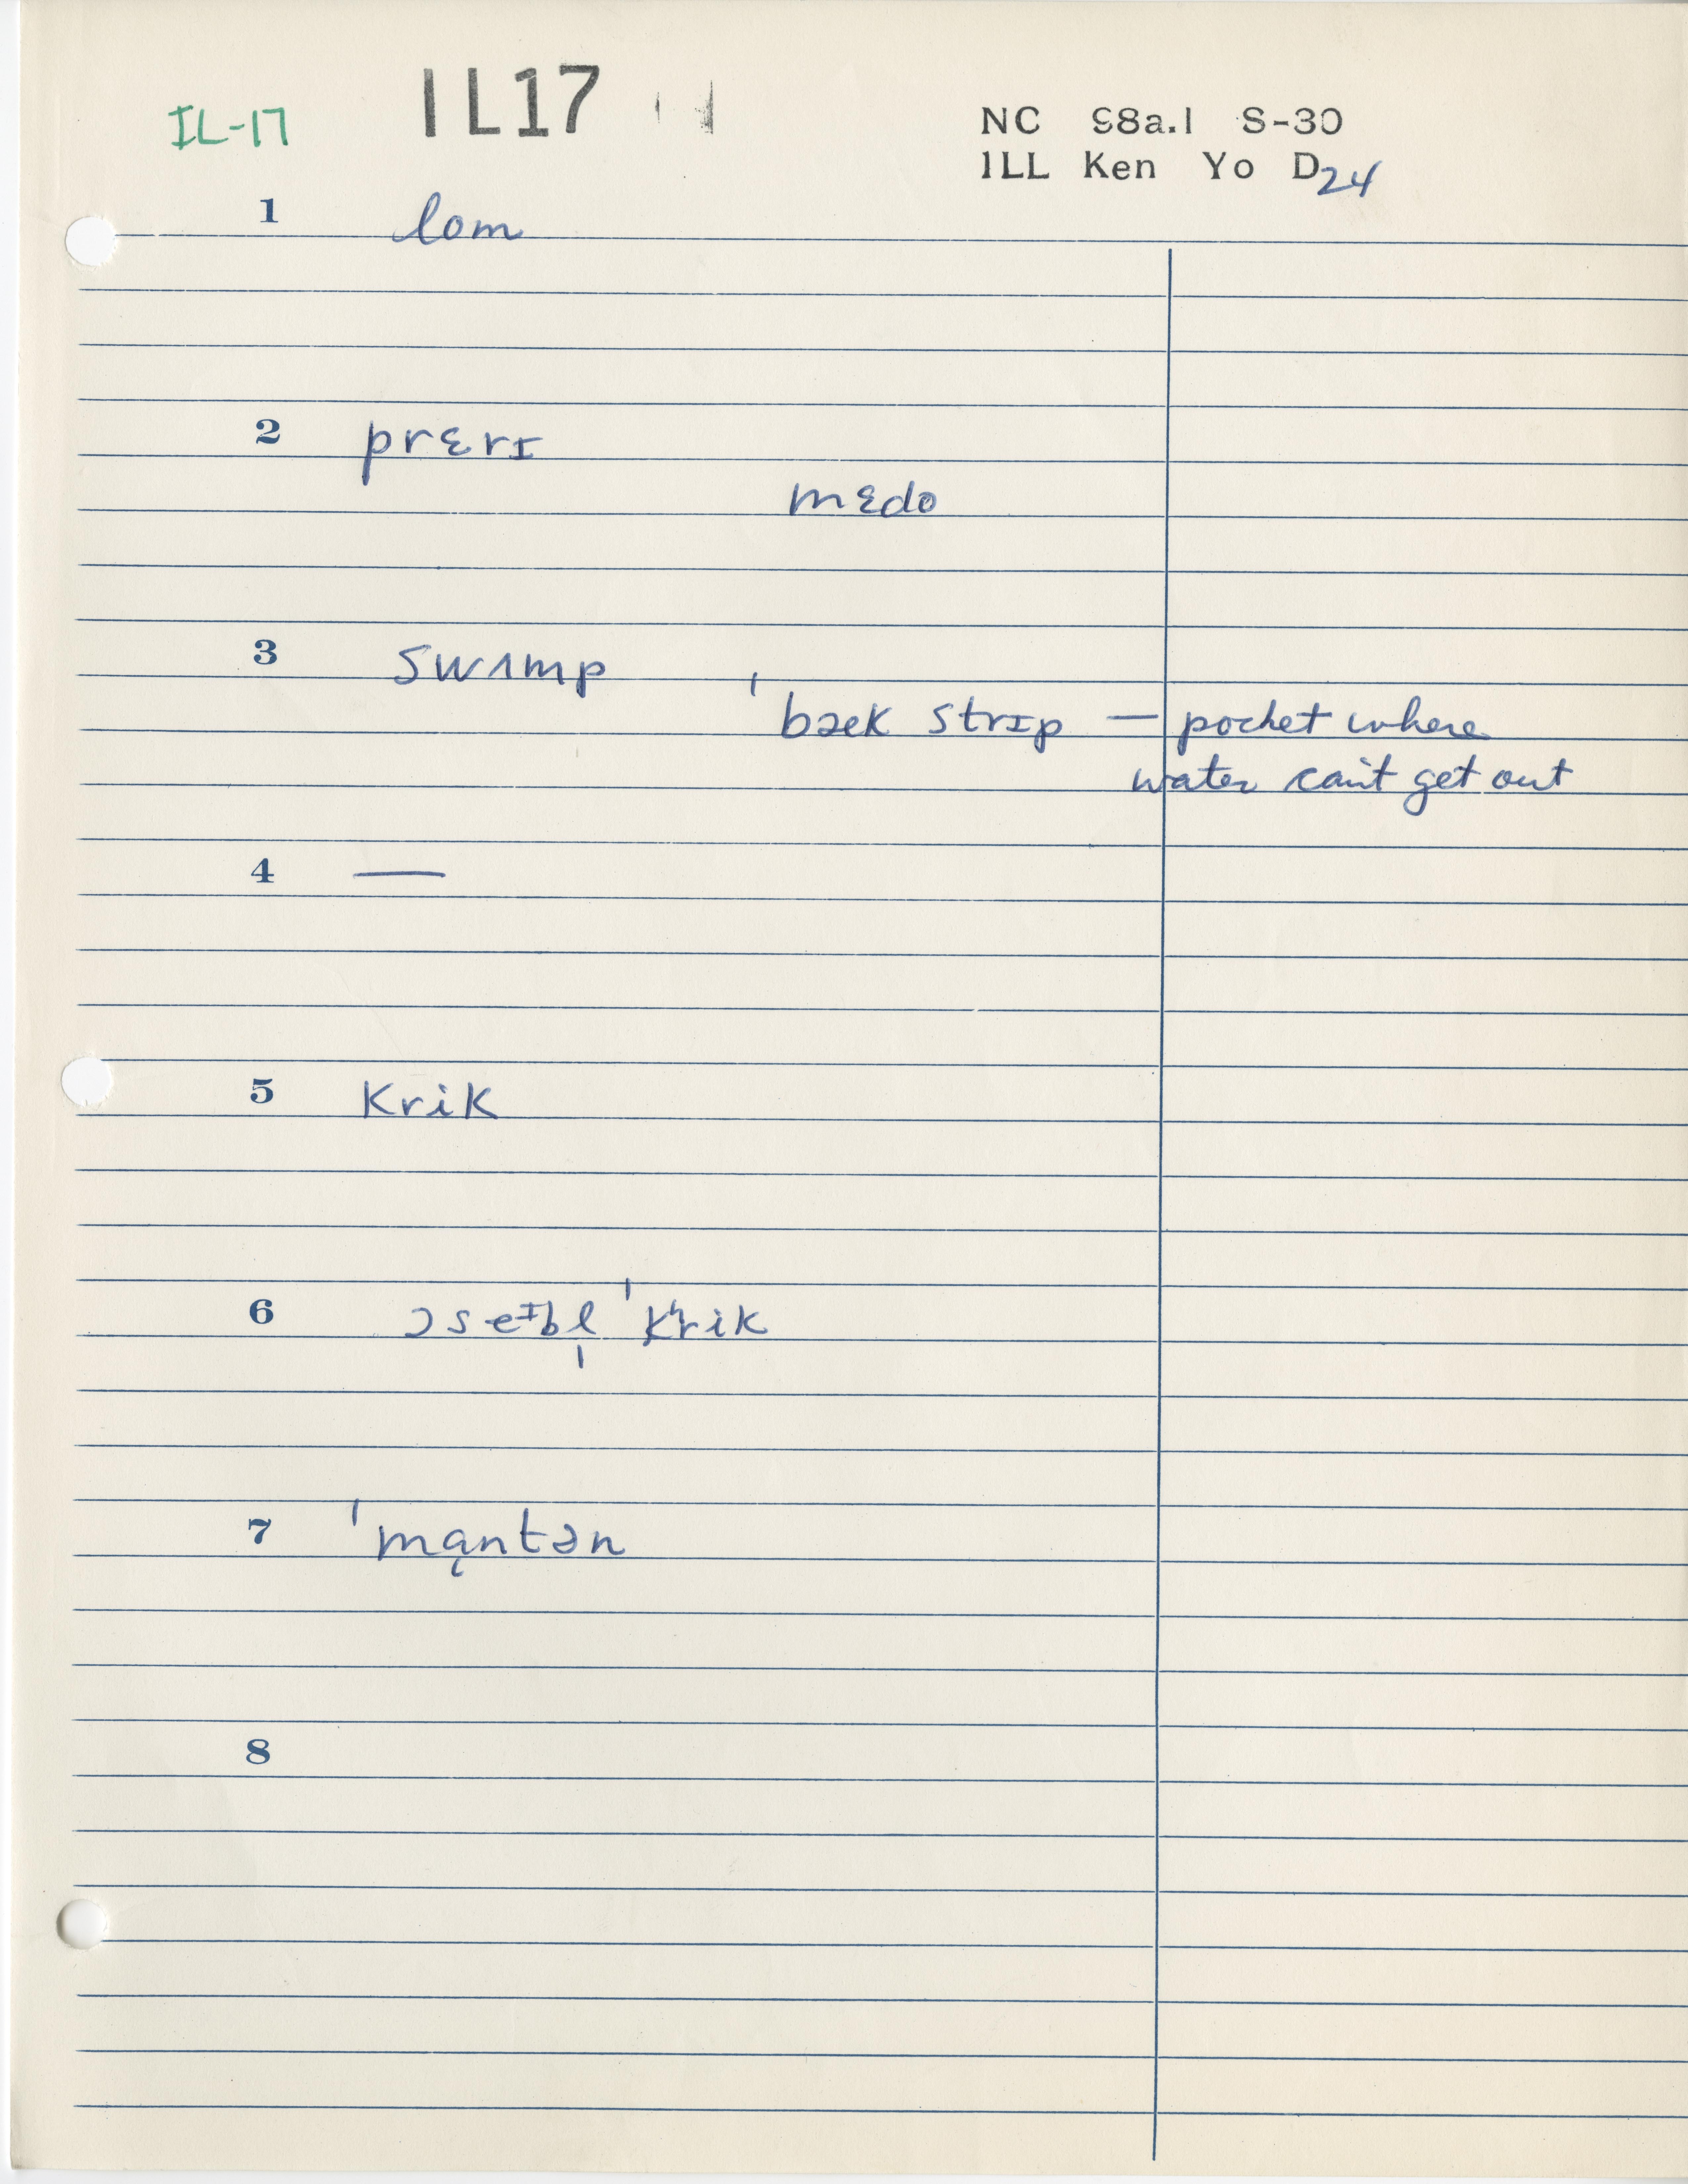 IL-17 IL17
NC 98a.1 S-30
ILL Ken Yo D24
1 lom
2 prɛrɪ
mɛdo
3 swɑmp
'bæk strɪp — pocket where
water can't get out
4 —
5 krik
6 ɔseɪbl̩ 'krik
7 'mɑ̨ntən
8